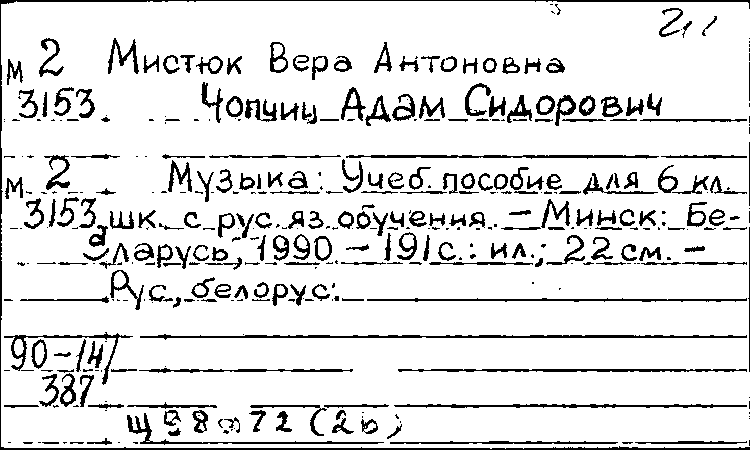 М 2 Мистюк Вера Антоновна
3153 Чопчиц Адам Сидорович
М 2 Музыка: Учеб. пособие для 6 кл.
3153 шк. с рус. яз. обучения. – Минск: Бе-
а ларусь, 1990. – 191 с.: ил.; 22 см. –
Рус., белорус.
90-14/
387